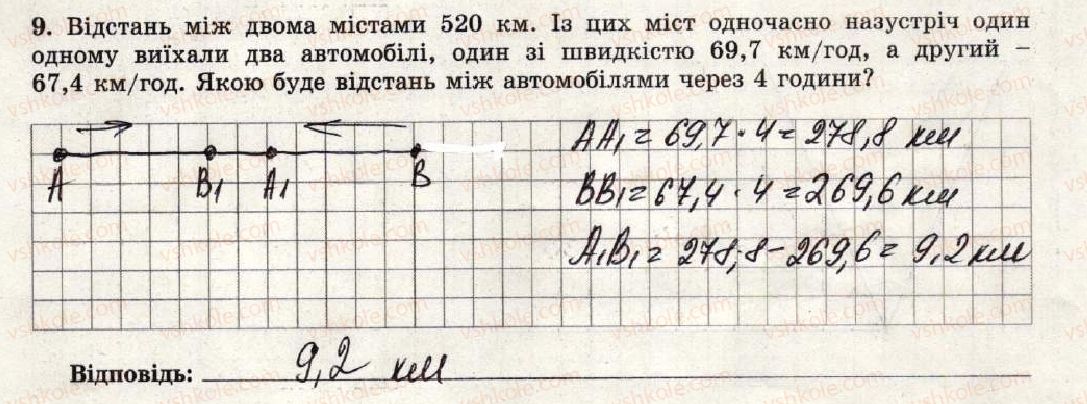 9. Відстань між двома містами 520 км. Із цих міст одночасно назустріч один
одному виїхали два автомобілі, один зі швидкістю 69,7 км/год, а другий –
67,4 км/год. Якою буде відстань між автомобілями через 4 години?
A B₁ A₁ B
AA₁ = 69,7 · 4 = 278,8 км
BB₁ = 67,4 · 4 = 269,6 км
A₁B₁ = 278,8 - 269,6 = 9,2 км
Відповідь: 9,2 км